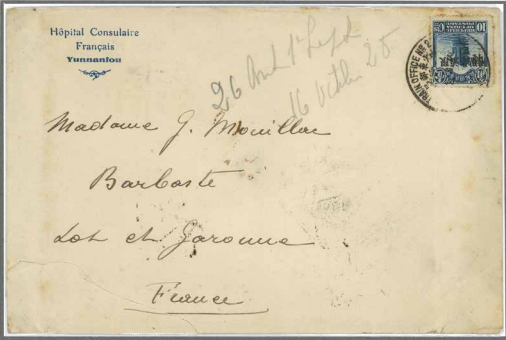 Hôpital Consulaire
Français
Yunnanfou
26 Août 1r Sept
16 Octbre 25
Madame G. Mouillac
Barbaste
Lot et Garonne
France
TRAIN OFFICE No. 2
10